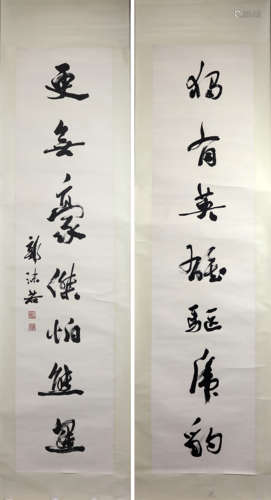 独有英雄驱虎豹
更無豪傑怕熊羆
郭沫若